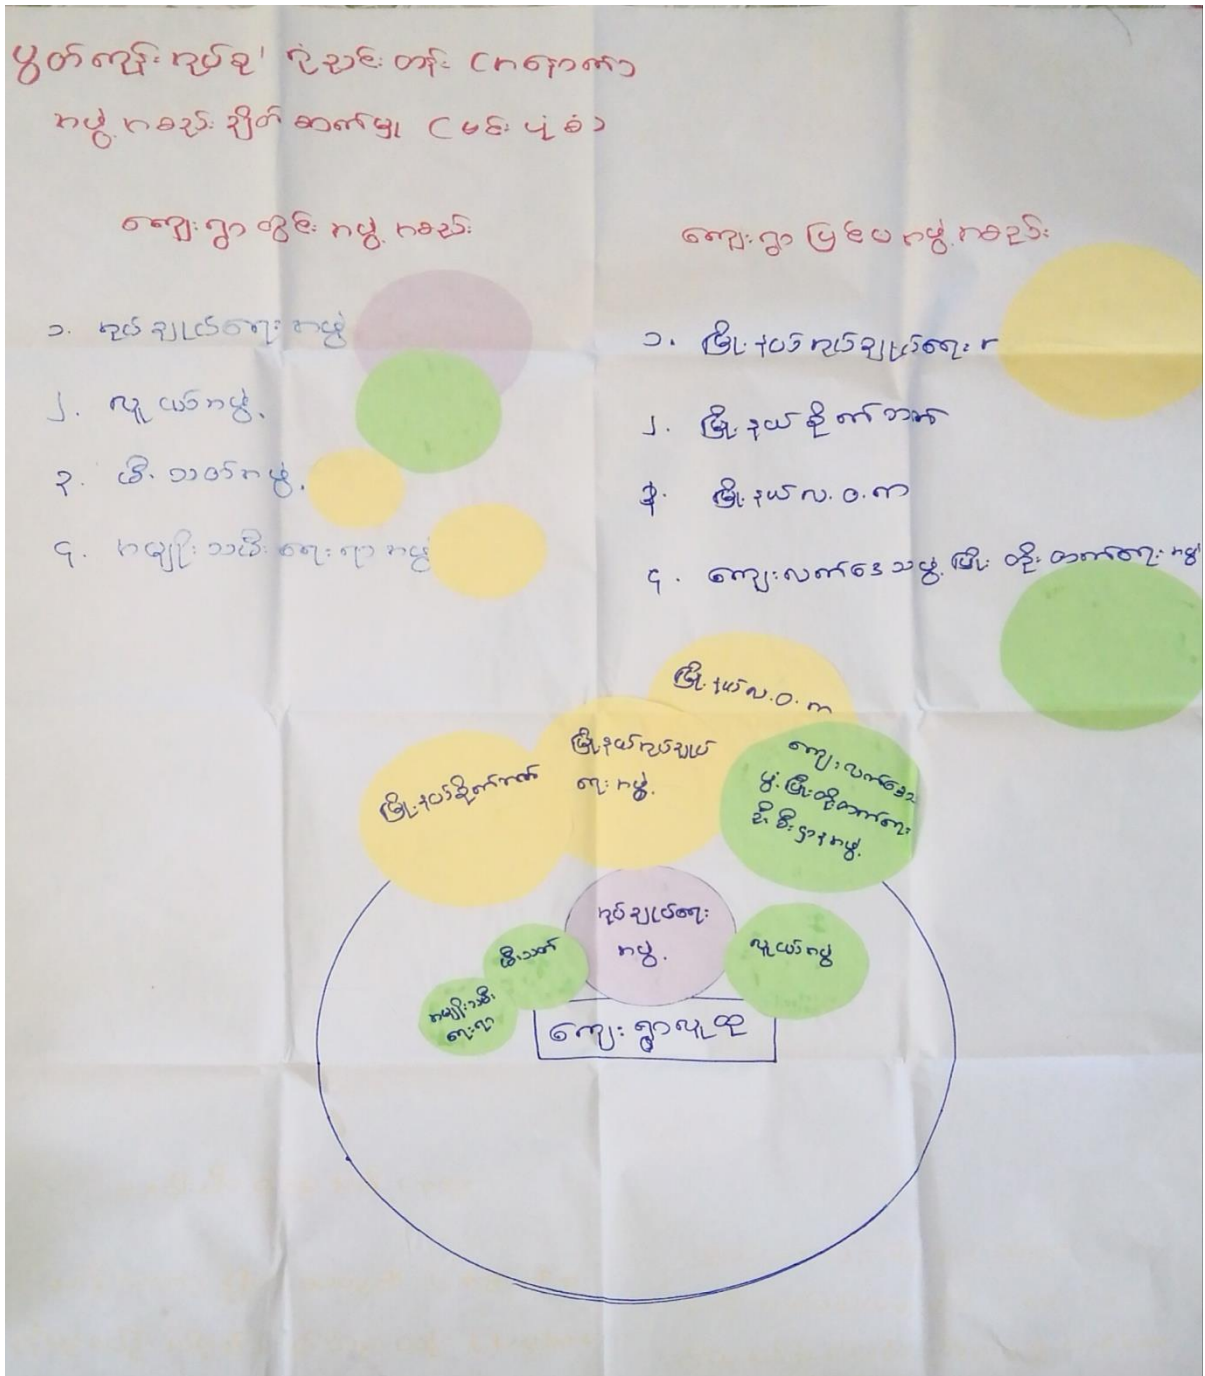 ပွတ်ကျွန်းအုပ်စု၊ တန်း
အဖွဲ့အစည်းချိတ်ဆက်မှု (မင်းပုံစံ)
ကျေးရွာတွင်းအဖွဲ့အစည်း
၁. အုပ်ချုပ်ရေးအဖွဲ့
၂. လူငယ်အဖွဲ့
၃. မီးသတ်အဖွဲ့
၄. အမျိုးသမီးရေးရာအဖွဲ့
ကျေးရွာပြင်ပအဖွဲ့အစည်း
၁. မြို့နယ်အုပ်ချုပ်ရေးအ
၂. မြို့နယ်စိုက်ဘဏ်
၃. မြို့နယ်လ.ဝ.က
၄. ကျေးလက်ဒေသဖွံ့ဖြိုးတိုးတက်ရေးအဖွဲ့
မြို့နယ်လ.ဝ.က
မြို့နယ်အုပ်ချုပ်
ရေးအဖွဲ့
မြို့နယ်စိုက်ဘဏ်
ကျေးလက်ဒေသ
ဖွံ့ဖြိုးတိုးတက်ရေး
ဦးစီးဌာနအဖွဲ့
အုပ်ချုပ်ရေး
အဖွဲ့
မီးသတ်
လူငယ်အဖွဲ့
အမျိုးသမီး
ရေးရာ
ကျေးရွာလူထု